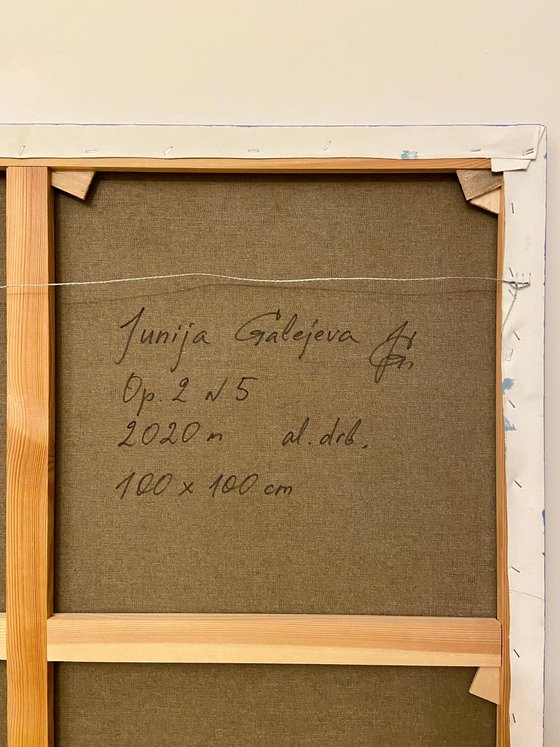 Junija Galejeva
Op. 2 N 5
2020 m al. drb.
100 x 100 cm